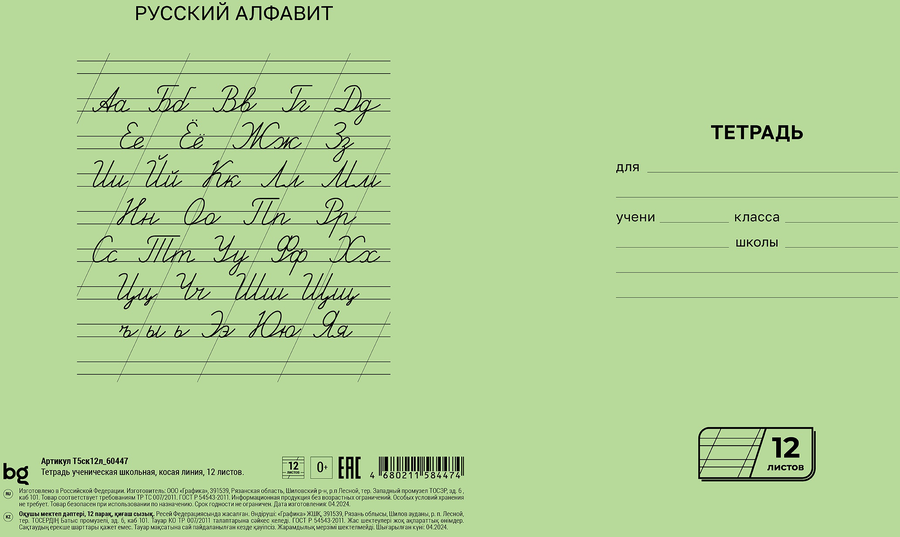 РУССКИЙ АЛФАВИТ
Аа Бб Вв Гг Дд
Ее Ёё Жж Зз
Ии Йй Кк Лл Мм
Нн Оо Пп Рр
Сс Тт Уу Фф Хх
Цц Чч Шш Щщ
ъ ы ь Ээ Юю Яя
bg
Артикул Т5ск12л_60447
Тетрадь ученическая школьная, косая линия, 12 листов.
12
листов
0+
ЕАС
4 680211 584474
RU
Изготовлено в Российской Федерации. Изготовитель: ООО «Графика», 391539, Рязанская область, Шиловский р-н, р.п.Лесной, тер. Западный промузел ТОСЭР, зд. 6,
каб 101. Товар соответствует требованиям ТР ТС 007/2011. ГОСТ Р 54543-2011. Информационная продукция без возрастных ограничений. Особых условий хранения
не требует. Товар безопасен при использовании по назначению. Срок годности не ограничен. Дата изготовления: 04.2024.
KZ
Оқушы мектеп дәптері, 12 парақ, қиғаш сызық. Ресей Федерациясында жасалған. Өндіруші: «Графика» ЖШҚ, 391539, Рязань облысы, Шилов ауданы, р. п. Лесной,
тер. ТОСЕРДІҢ Батыс промузелі, зд. 6, каб 101. Тауар КО ТР 007/2011 талаптарына сәйкес келеді. ГОСТ Р 54543-2011. Жас шектеулері жоқ ақпараттық өнімдер.
Сақтаудың ерекше шарттары қажет емес. Тауар мақсатына сай пайдаланылған кезде қауіпсіз. Жарамдылық мерзімі шектелмейді. Шығарылған күні: 04.2024.
ТЕТРАДЬ
для
учени класса
школы
12
листов